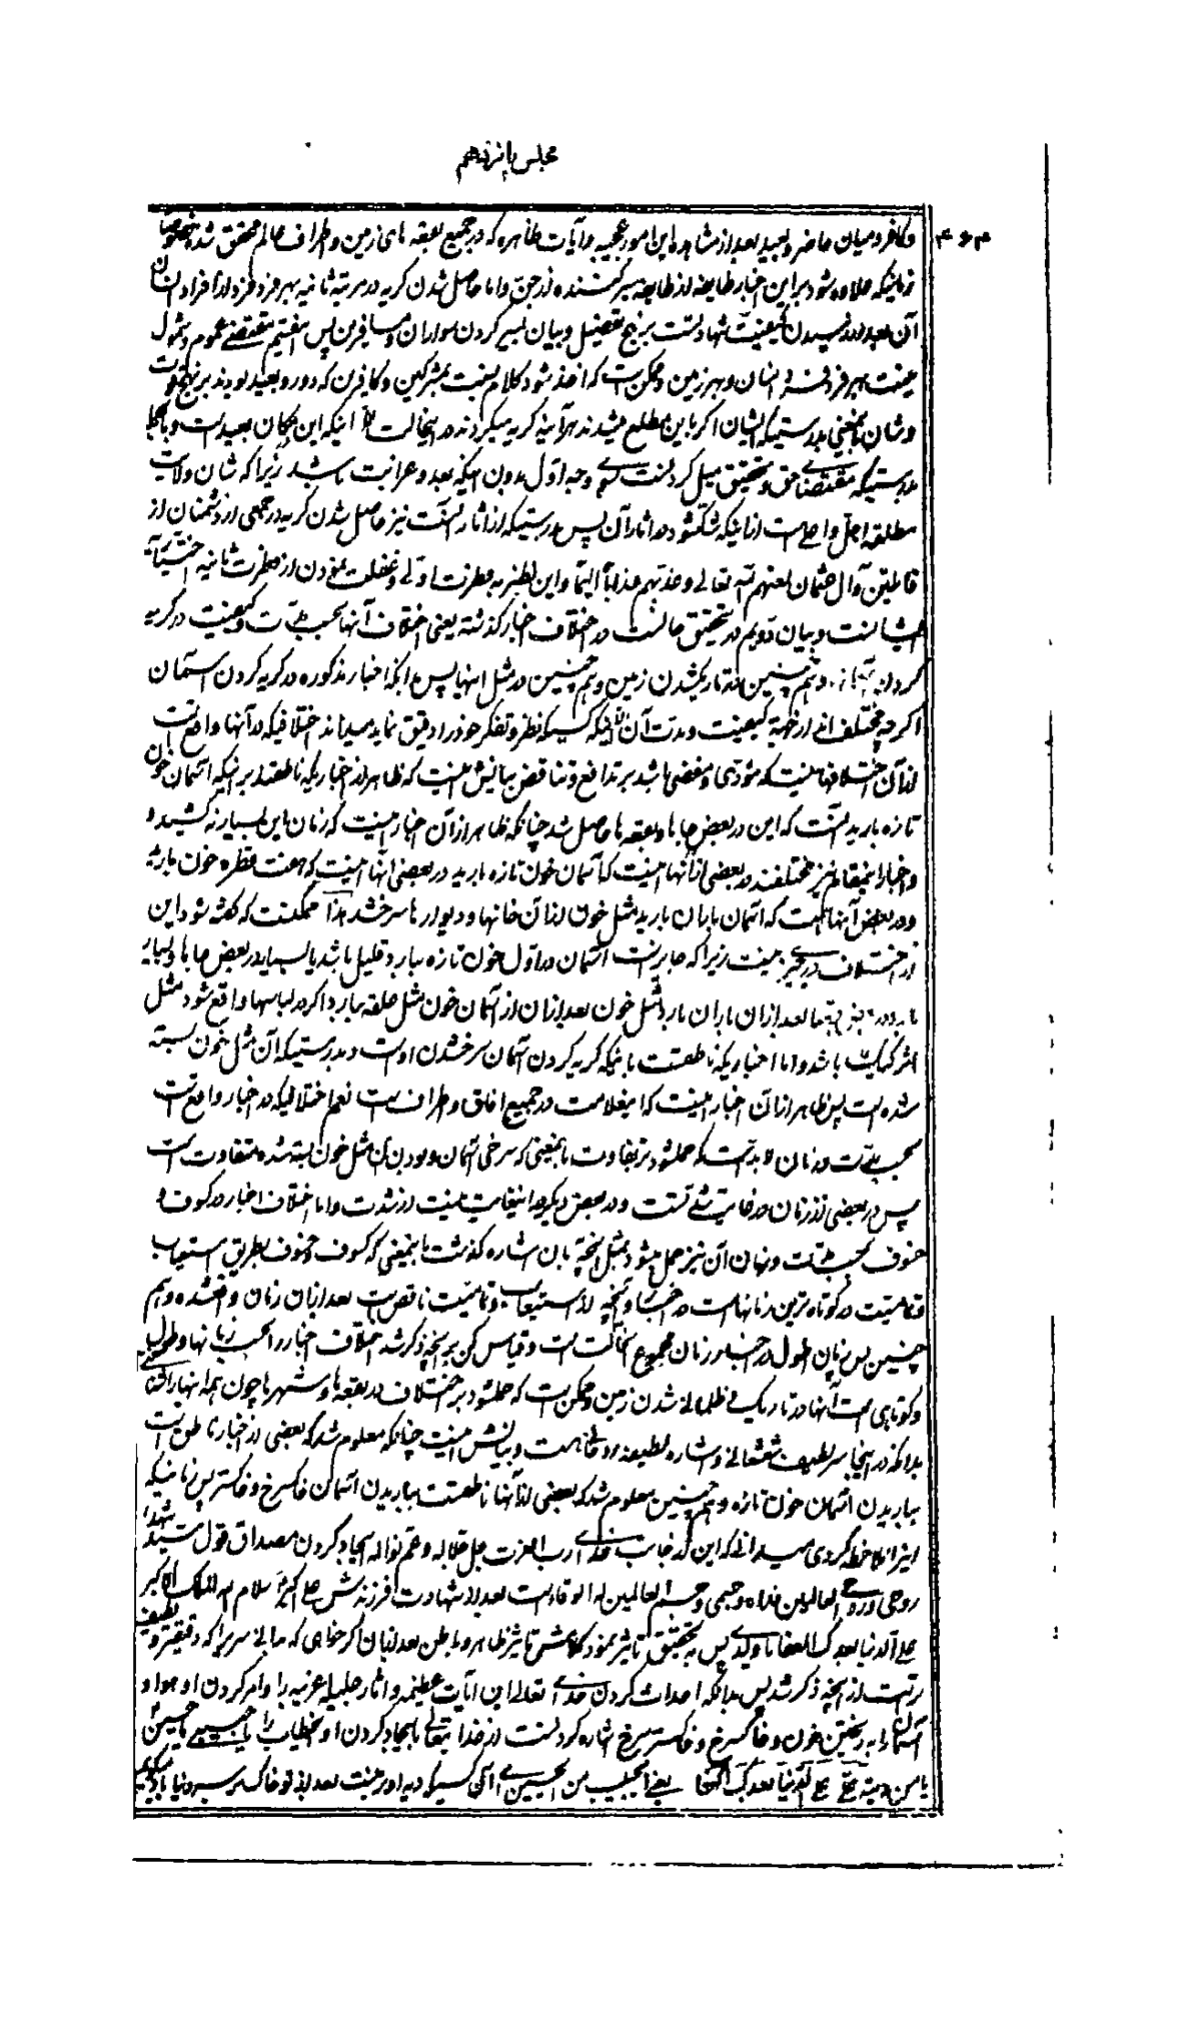 مجلس پانزدهم
۴۶۴
وکافر ومیان حاضر وبعید بعد از مشاهده این امور عجیبه وآیات ظاهره که در جمیع بقعه های زمین واطراف عالم محقق شد بخصوص
زمانیکه علاوه شود براین اخبار طایفه از طایفه سیر کننده از جن واما حاصل شدن گریه در مرتبه ثانیه بهر فرد فرد از افراد انسان
آن بعد از رسیدن کیفیت شهادتست بر نهج تفصیل وبیان سیر کردن سواران ومسافرین پس مقتضی عموم وشمول
نیست بهر فرد انسان وبهر زمین وممکن است که اخذ شود کلام نسبت بمشرکین وکافرین که دور وبعید بودند بر نهج
وشان بمعنی بدرستیکه ایشان اگر باین مطلع میشدند هرآینه گریه میکردند در اینحالت الا اینکه این مکان بعید است
بدرستیکه مقتضای حق وتحقیق میل کردنست بسوی وجه اول بدون اینکه بعد وغرابت باشد زیرا که شان ولایت
مطلقه اجل واعلی است از اینکه شک شود در اثار آن پس بدرستیکه از اثار آنست نیز حاصل شدن گریه در جمعی از دشمنان از
قاتلین وآل عثمان لعنهم الله تعالی وعذبهم عذابا الیما واین بنظر به فطرت اولی وغفلت نمودن از فطرت ثانیه
وبیان دویم در تحقیق حالست در اختلاف اخبار گذشته یعنی اختلاف آنها بحسب مدت وکیفیت در گریه
کردن وهم چنین در تاریک شدن زمین وهم چنین در مثل اینها پس بدانکه اخبار مذکوره در گریه کردن آسمان
اگرچه مختلف اند از جهة کیفیت ومدت آن الا اینکه کسیکه نظر وتفکر خود را دقیق نماید میداند اختلافیکه در آنها واقع است
از آن اختلافها نیست که مؤدی ومفضی باشد بر تدافع وتناقض بیانش اینست که ظاهر از اخباریکه ناطقند بر اینکه آسمان خون
تازه بارید آنست که این در بعض جاها وبقعه ها حاصل شد چنانکه ظاهر از آن اخبار اینست که زمان این بسیار نه کشید و
واخبار اینمقام نیز مختلفند در بعضی از آنها اینست که آسمان خون تازه بارید در بعضی اینها اینست که هفت قطره خون بارید
ودر بعض آنها اینست که آسمان باران بارید مثل خون از آن خانها ودیوارها سرخ شد هذا ممکنست که گفته شود این
از اختلاف در چیزی نیست زیرا که جایز است آسمان در اول خون تازه ببارد قلیل باشد یا بسیار در بعض جاها وبسیار
بعد از آن باران بارد مثل خون بعد از آن از آسمان خون مثل علقه ببارد اگر در لباسها واقع شود مثل
باشد واما اخباریکه ناطقست باینکه گریه کردن آسمان سرخ شدن اوست وبدرستیکه آن مثل خون بسته
شده است پس ظاهر از آن اخبار اینست که اینعلامت در جمیع افاق واطراف است نعم اختلافیکه در اخبار واقع است
بحسب مدت وزمان لابد است که حمل شود بر تفاوت باینمعنی که سرخی آسمان وبودن آن مثل خون بسته شده متفاوت است
پس در بعضی از زمان در غایت شدتست ودر بعض دیگر در اینغایت نیست از شدت واما اختلاف اخبار در کسوف و
خسوف بحسب مدت وزمان آن نیز حمل میشود بمثل آنچه بان اشاره گذشت باینمعنی که کسوف وخسوف بطریق استیعاب
وتمامیت در کوتاه ترین زمانهاست در اخبار وآنچه از استیعاب وتمامیت ناقص است بعد از آن زمان واقع شده وهم
چنین پس زمان اطول در اخبار زمان مجموع حالست وقیاس کن بر آنچه ذکر شد اختلاف اخبار را بحسب زمانها وطول
وکوتاهی مدت آنها در تاریک وظلمانی شدن زمین وممکن است که حمل شود بر اختلاف در بقعه ها وشهرها چون
بدانکه در اینجا سر لطیف شعشعانی واشاره لطیفه نورانی است وبیانش اینست چنانکه معلوم شد که بعضی از اخبار ناطق است
بباریدن آسمان خون تازه وهم چنین معلوم شد که بعضی از آنها ناطقست بباریدن آسمان خاک سرخ وخاکستر پس زمانیکه
اینرا ملاحظه کردی میدانی که این از جانب خدای رب العزت جل جلاله وعم نواله ایجاد کردن مصداق قول سید شهدا
روحی وروح العالمین فداه وجسمی وجسم العالمین له الوقاء است بعد از شهادت فرزندش علی اکبر سلام الله الملک الاکبر
علی الدنیا بعدک العفا یا ولدی پس به تحقیق تاثیر نمود کلامش تاثیر ظاهر وباطن بعد از آن اگر خواهی که
مرتبت از آنچه ذکر شد پس بدانکه احداث کردن خدای تعالی این آیات عظیمه واثار جلیله غریبه را وامر کردن او هوا و
آسمان را به ریختن خون وخاک سرخ وخاکستر سرخ اشاره کردنست از خدا تعالی بایجاد کردن او بخطاب را یا حبیبی یا حسین
یا من علی الدنیا بعدک العفا یعنی ای حبیب من ای حسین ای کسیکه بعد از تو خاک بر سر دنیا باد